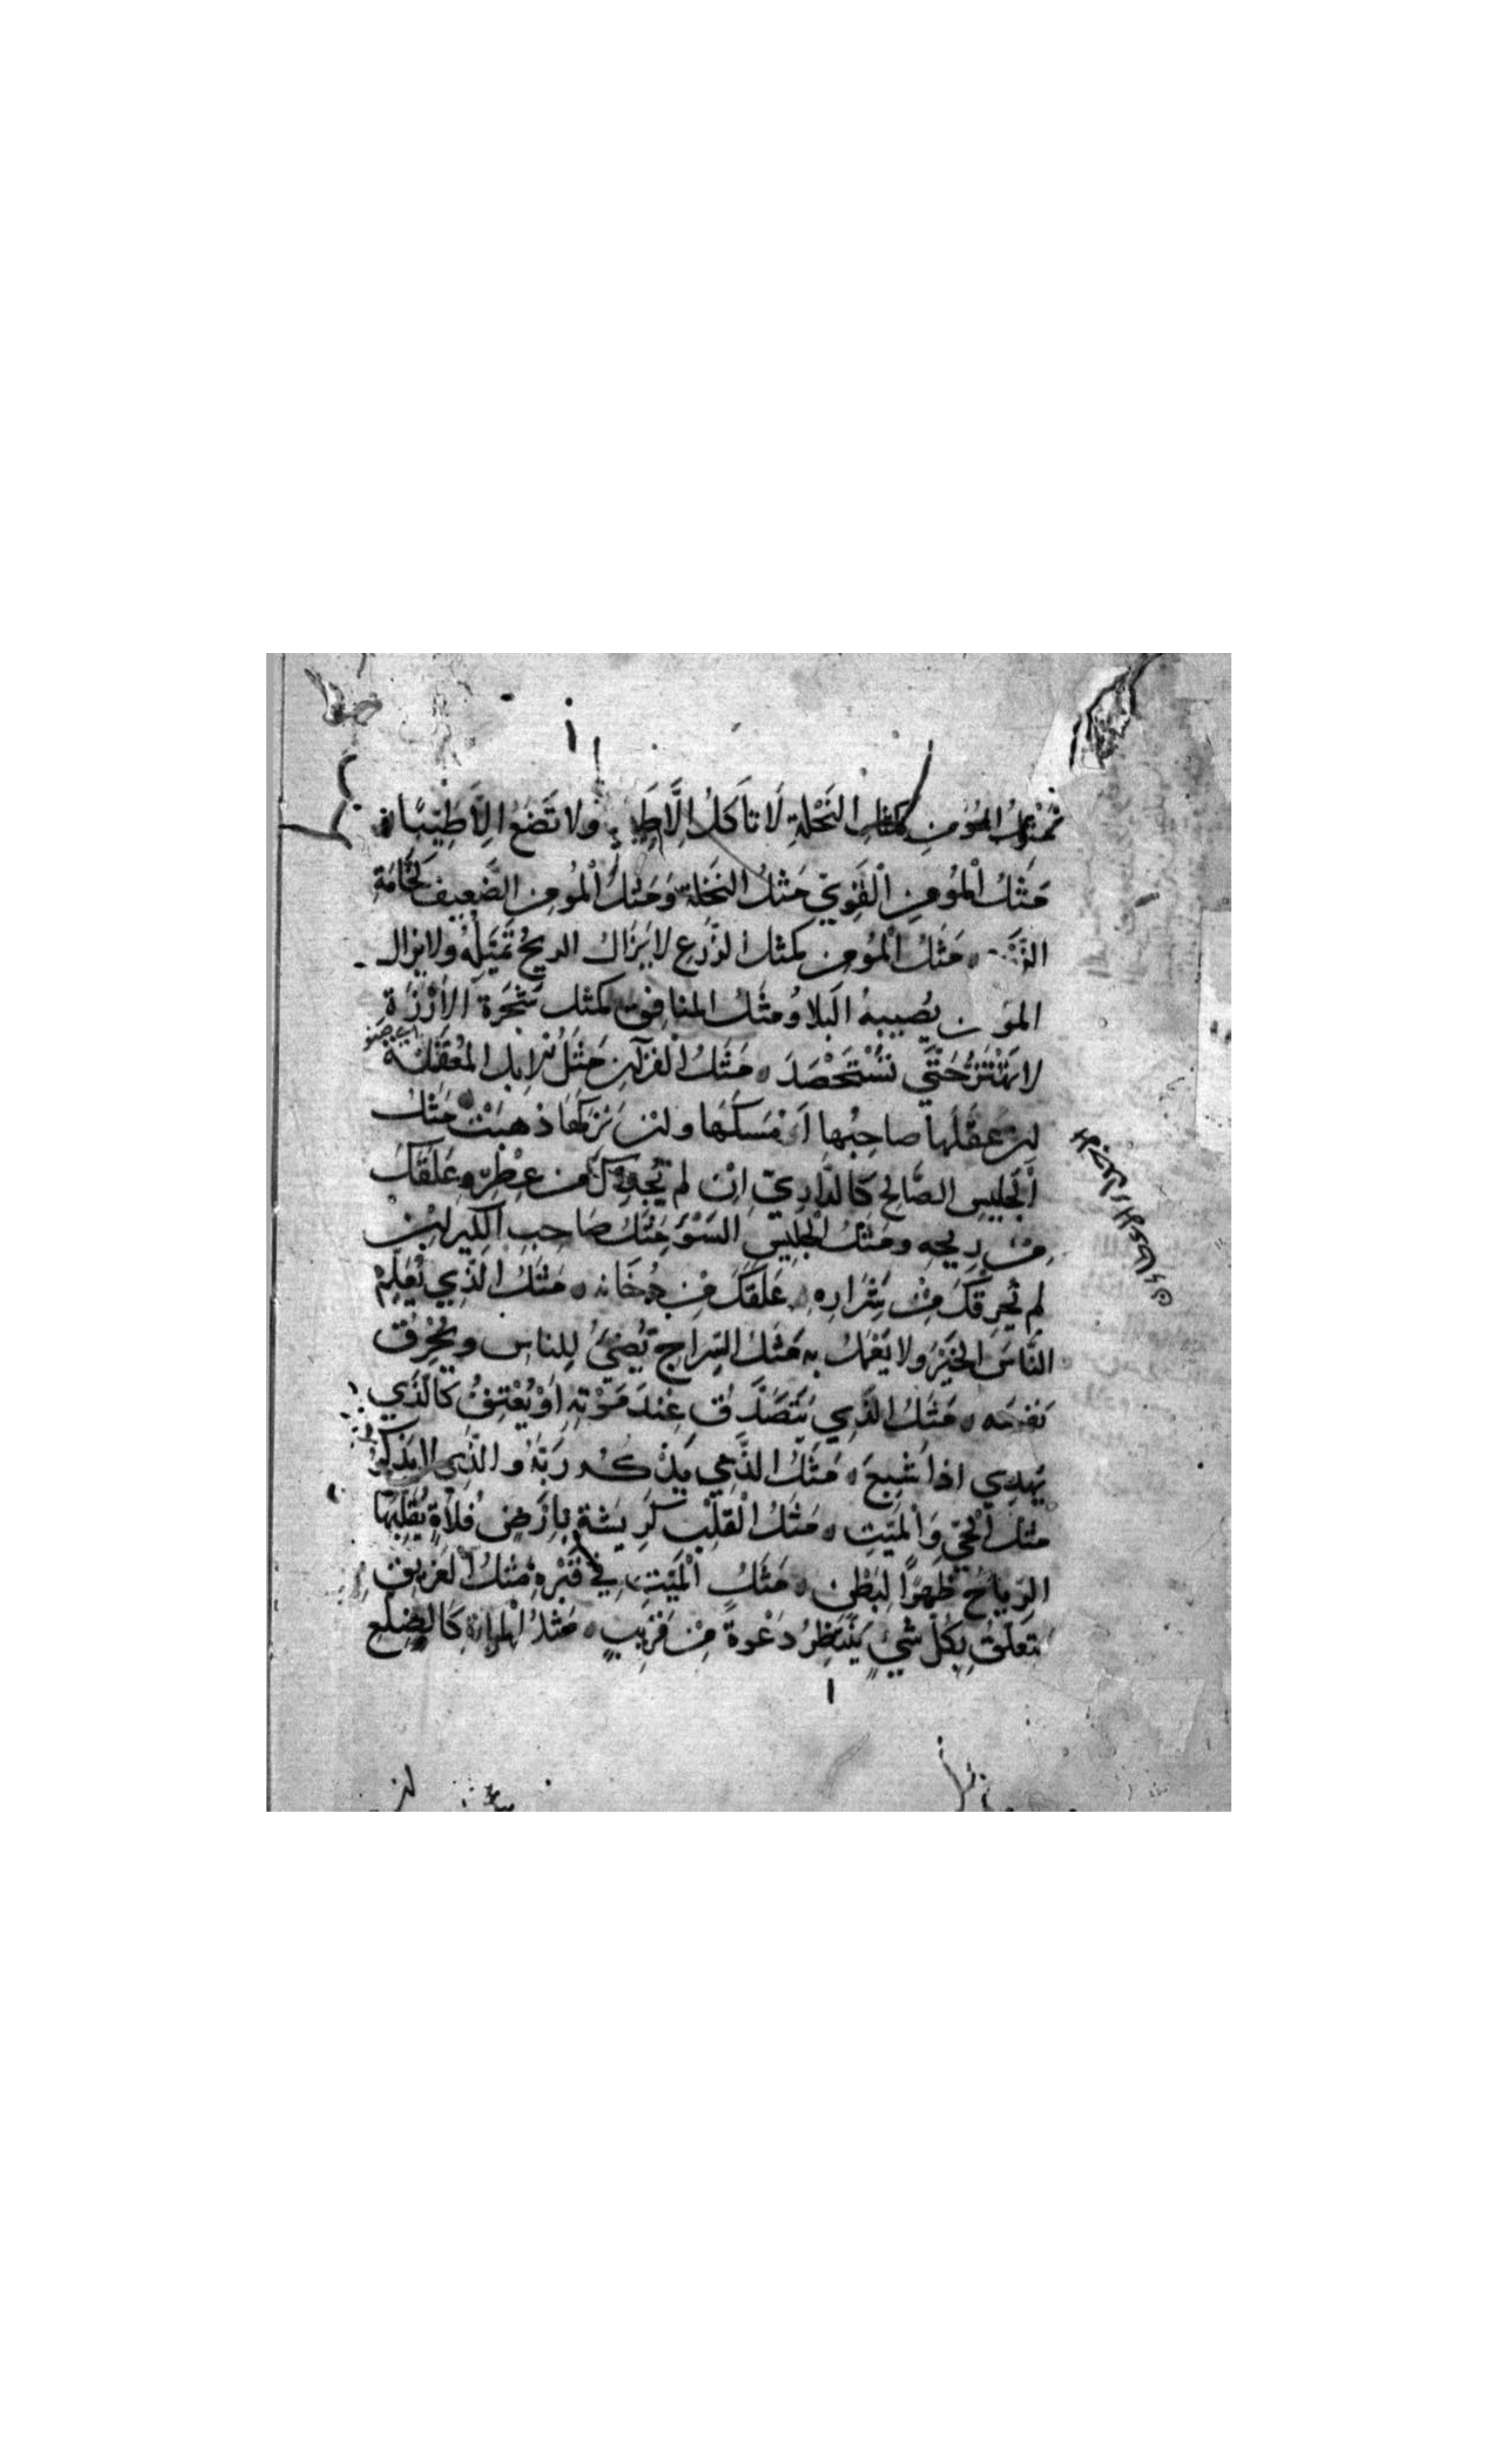 مَثَلُ المُؤمِنِ كمثل النَّحْلَةِ لَا تَأكُلُ إلَّا طَيِّبًا ولا تَضَعُ إلّا طَيِّبًا
مَثَلُ المُؤمِنِ الْقَوِيِّ مَثَلُ النَّخْلَةِ وَمَثَلُ الْمُؤمِنِ الضَّعِيفِ كَخَامَةِ
الزَّرْعِ مَثَلُ الْمُؤمِنِ كمثل الزَّرْعِ لا يَزَالُ الريحُ تُمَيِّلُهُ ولا يزال
المؤمن يُصِيبهُ البَلاءُ ومَثَلُ المنافِقِ كمثل شَجَرَةِ الأَرْزَةِ
لا تَهْتَزُّ حَتَّي تُسْتَحْصَدَ مَثَلُ الْقرآنِ مَثَلُ الإبل المُعَقَّلَةِ
إن عَقَلَها صاحِبُها أَمْسَكَهَا وإن تَرَكَهَا ذهبَتْ مَثَلُ
الْجَلِيسِ الصَّالِحِ كَالدَّارِيِّ إنْ لم يُجْدِكَ مِن عِطْرِهِ عَلِقَكَ
مِنْ رِيحِهِ ومَثَلُ الْجَلِيسِ السَّوْءِ مَثَلُ صَاحِبِ الكِيرِ إنْ
لم يُحْرِقْكَ مِنْ شَرَارِهِ عَلِقَكَ مِنْ دُخَانِهِ مَثَلُ الَّذِي يُعَلِّمُ
النَّاسَ الخَيْرَ ولا يَعْمَلُ بِهِ مَثَلُ السِّرَاجِ يُضِئُ لِلناسِ ويُحْرِقُ
نَفْسَه مَثَلُ الَّذِي يَتَصَدَّقُ عِنْدَ مَوْتِهِ أوْ يُعْتِقُ كَالَّذِي
يُهْدِي اذا شَبِعَ مَثَلُ الَّذِي يَذْكُر رَبَّهُ والَّذِي لا يَذْكُرُ
مَثَلُ الْحَيِّ وَالْمَيِّتِ مَثَلُ الْقَلْبِ كَرِيشَةٍ بِأَرْضٍ فَلَاةٍ يُقَلِّبُهَا
الرِّيَاحُ ظَهْرًا لِبَطْنٍ مَثَلُ الْمَيِّتِ فِي قَبْرِهِ مَثَلُ الْغَرِيقِ
يَتَعَلَّقُ بِكُلِّ شَيْءٍ يَنْتَظِرُ دَعْوَةً مِنْ قَرِيبٍ مَثَلُ المرأة كَالضِّلَعِ